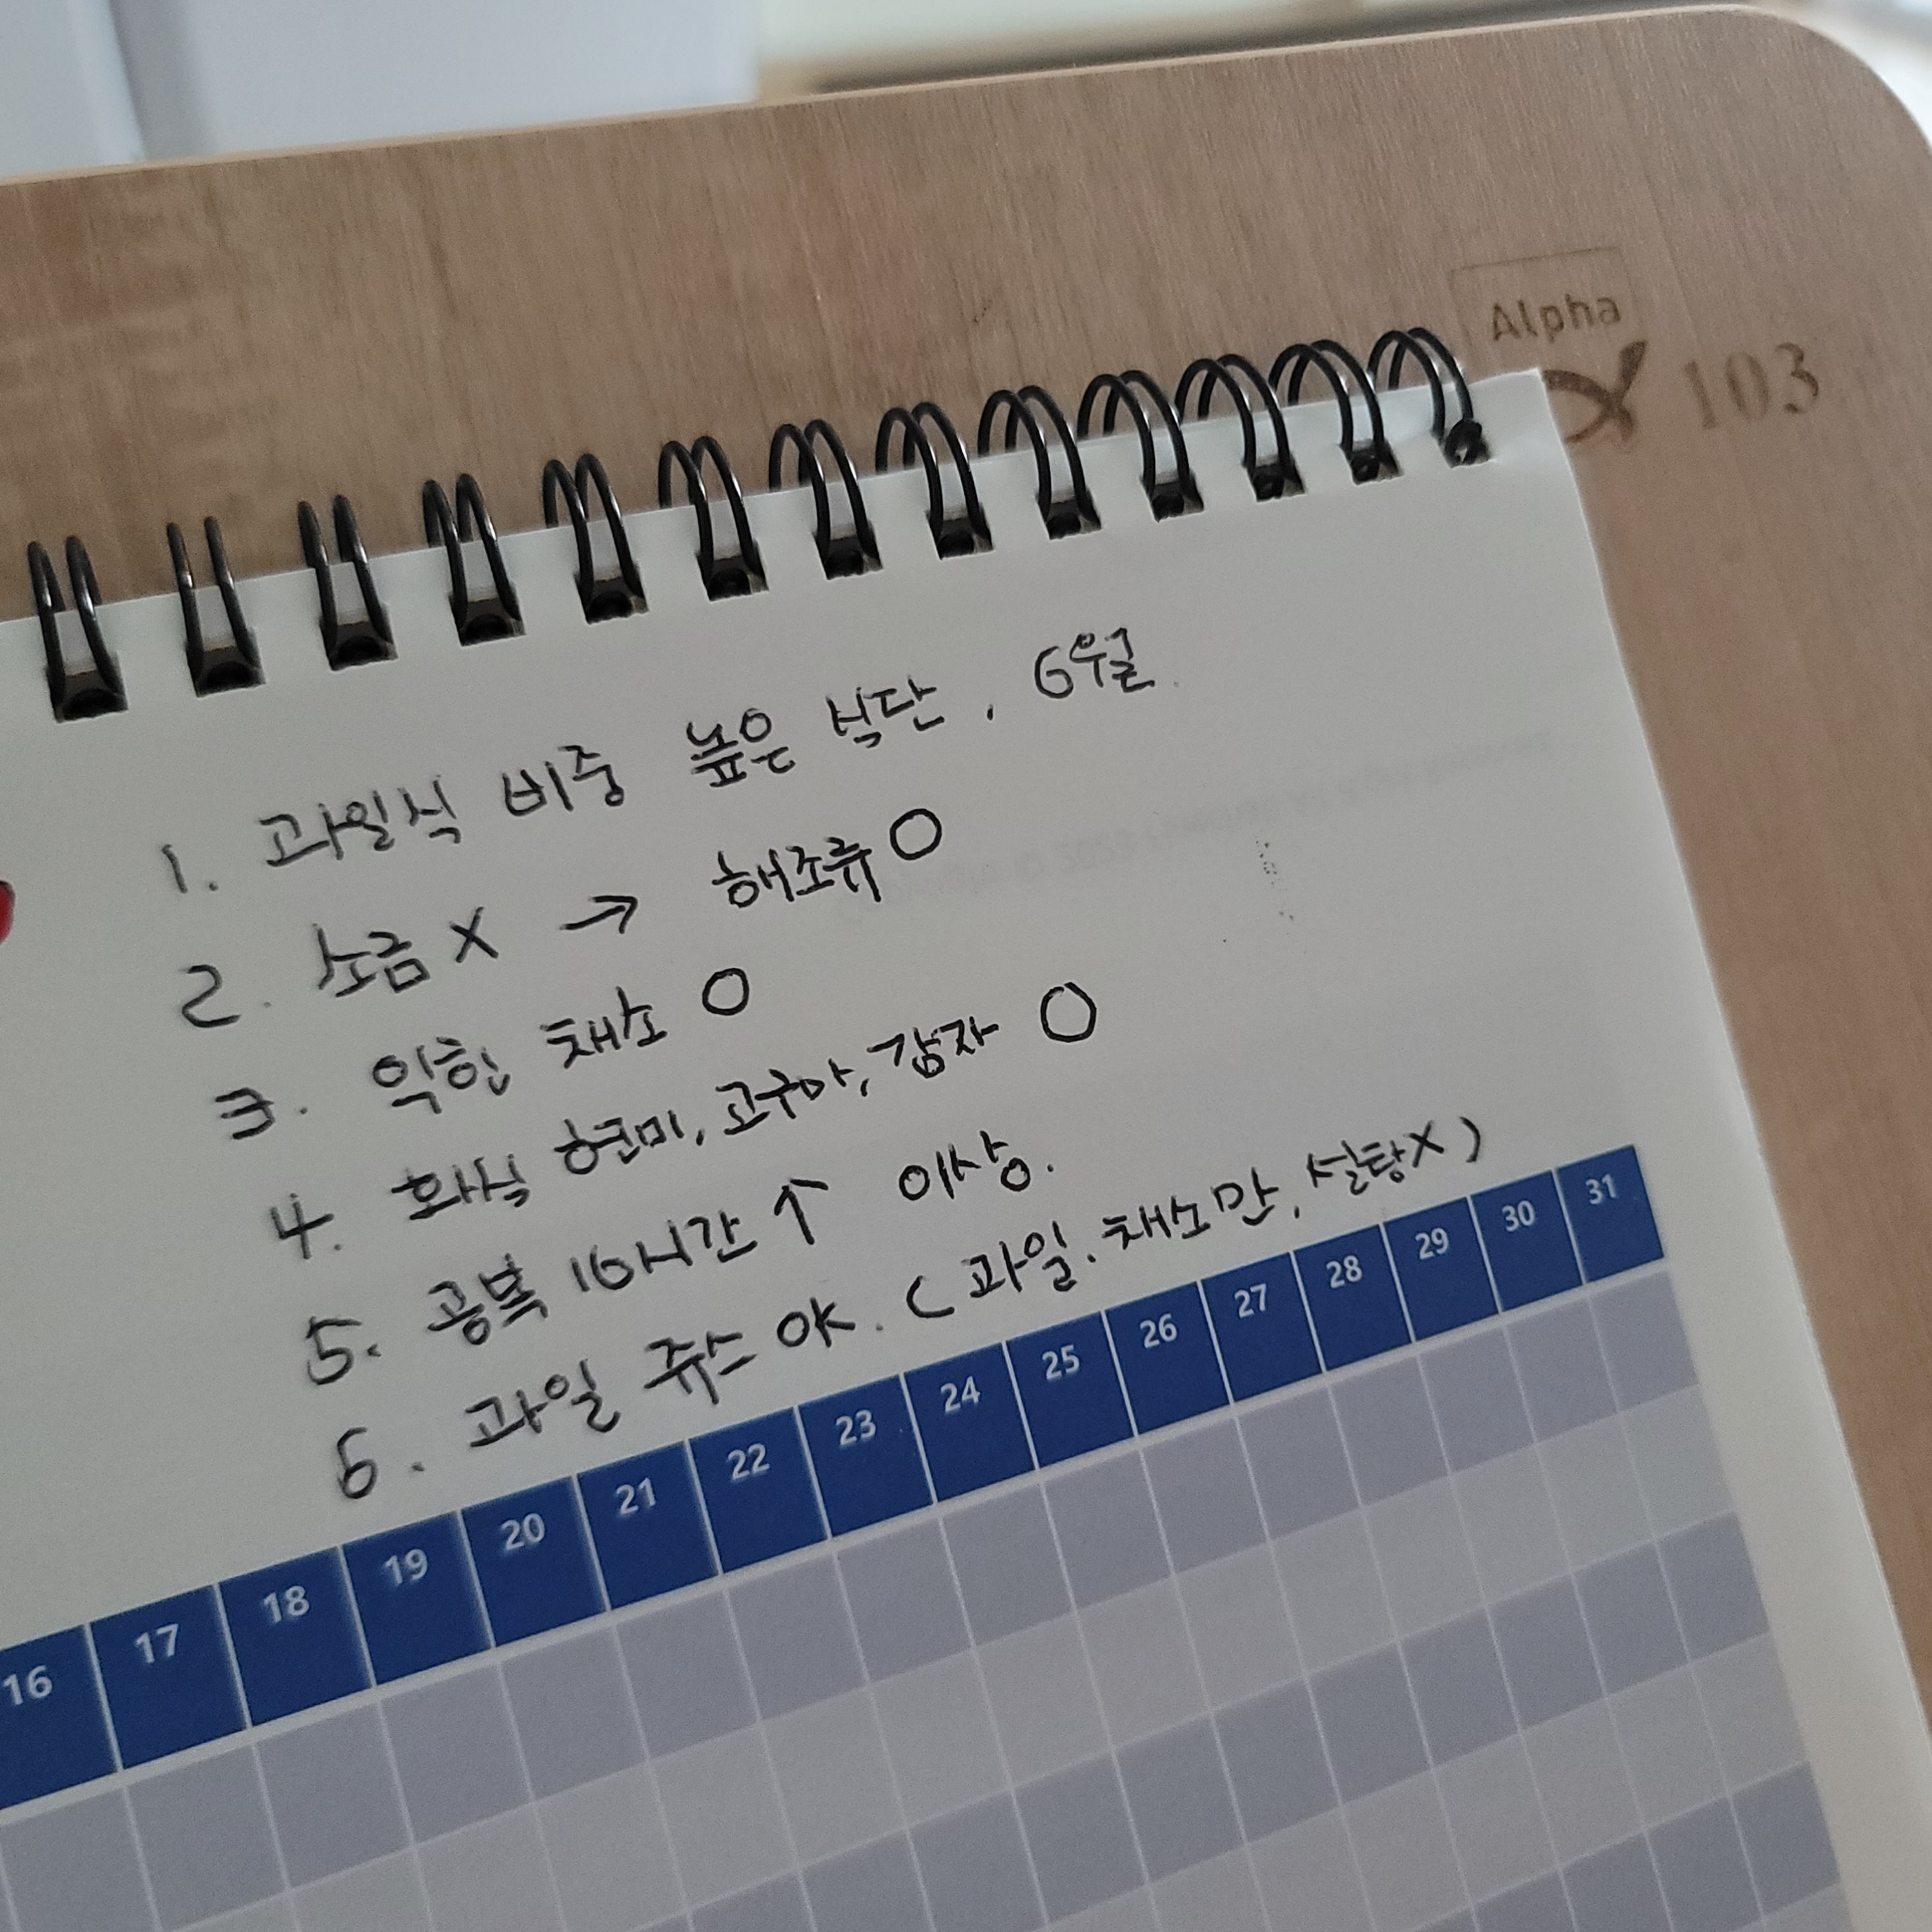 Alpha
103
1. 과일식 비중 높은 식단, 6월.
2. 소금 X → 해조류 O
3. 익힌 채소 O
4. 화식 현미, 고구마, 감자 O
5. 공복 16시간 ↑ 이상.
6. 과일 쥬스 OK. (과일. 채소만, 설탕X)
16 17 18 19 20 21 22 23 24 25 26 27 28 29 30 31